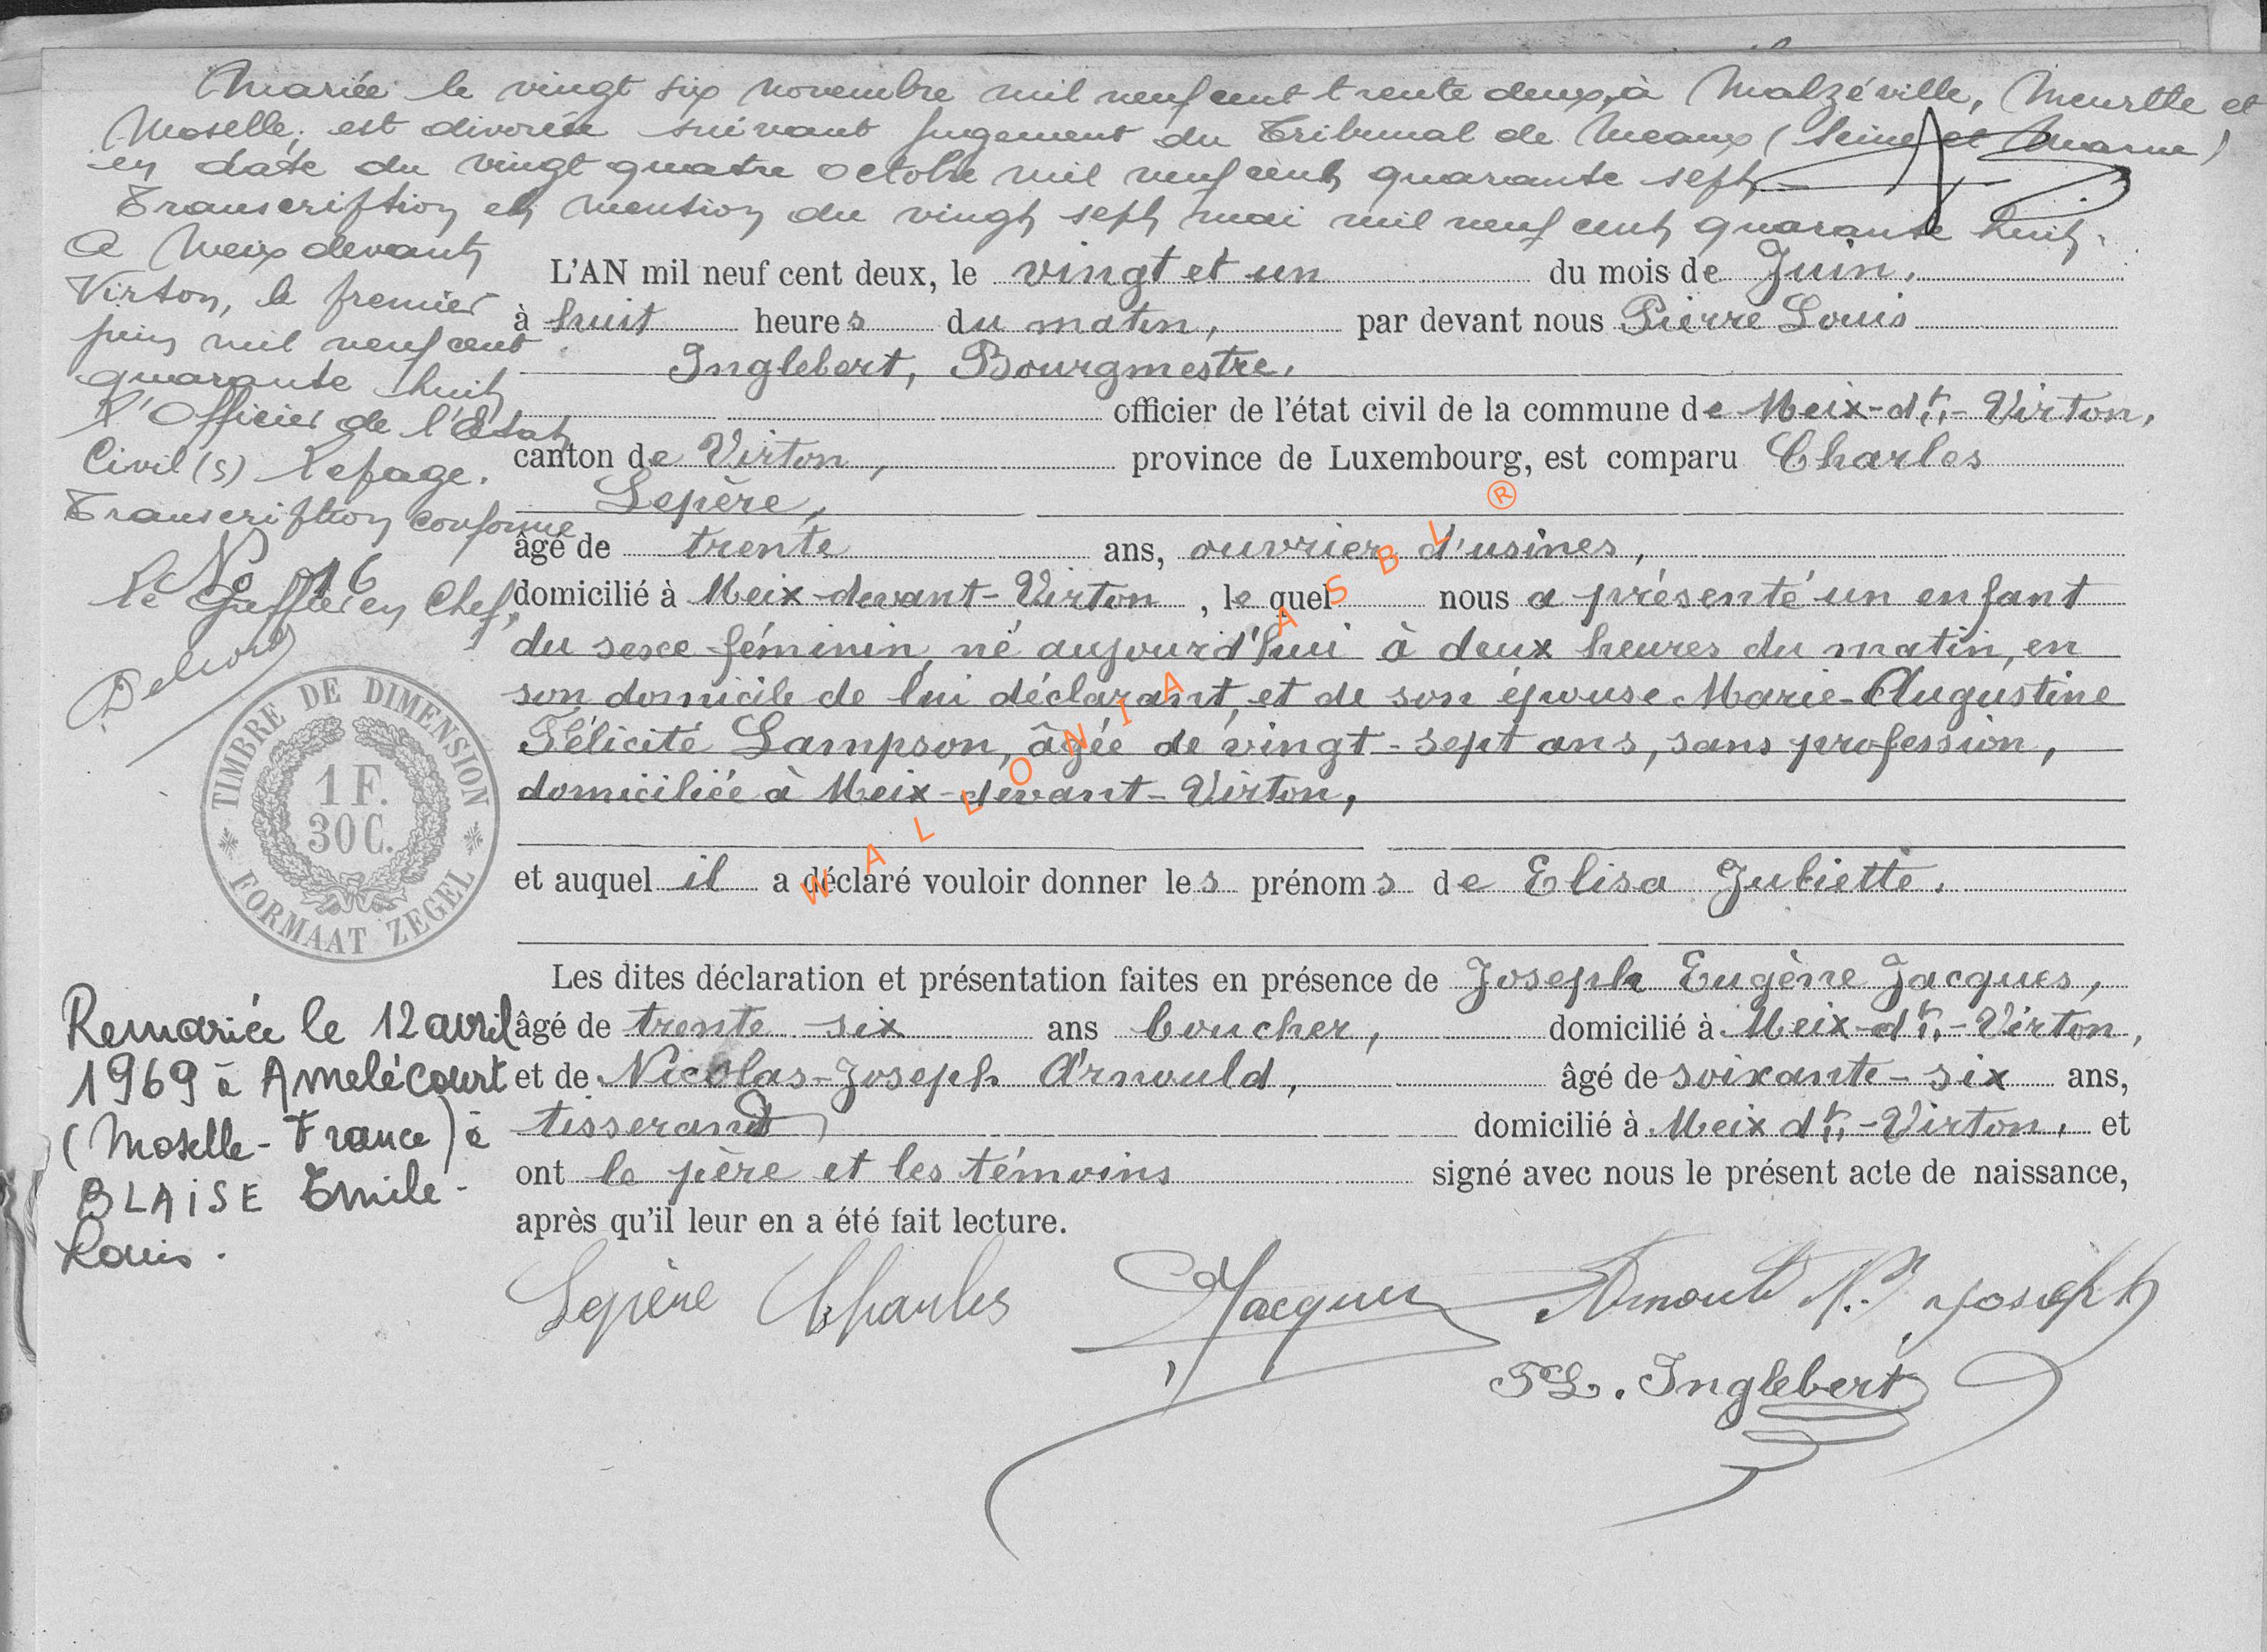 Mariée le vingt six novembre mil neuf cent trente deux, à Malzéville, Meurthe et
Moselle, est divorcée suivant jugement du Tribunal de Meaux (Seine et Marne)
en date du vingt quatre octobre mil neuf cent quarante sept,
Transcription et mention du vingt sept mai mil neuf cent quarante huit.
A Meix devant
Virton, le premier
juin mil neuf cent
quarante huit
L'Officier de l'Etat
Civil (s) Lepage.
Transcription conforme
No 16
Le Greffier en Chef,
TIMBRE DE DIMENSION
1 F.
30 C.
FORMAAT ZEGEL
Remariée le 12 avril
1969 à Amelécourt
(Moselle - France) à
BLAISE Emile-
Louis.
L'AN mil neuf cent deux, le vingt et un du mois de Juin,
à huit heures du matin, par devant nous Pierre Louis
Inglebert, Bourgmestre,
officier de l'état civil de la commune de Meix-dt.-Virton,
canton de Virton, province de Luxembourg, est comparu Charles
Lepère,
âgé de trente ans, ouvrier d'usines,
domicilié à Meix-devant-Virton, le quel nous a présenté un enfant
du sexe féminin, né aujourd'hui à deux heures du matin, en
son domicile de lui déclarant, et de son épouse Marie-Augustine
Félicité Lampson, âgée de vingt-sept ans, sans profession,
domiciliée à Meix-devant-Virton,
et auquel il a déclaré vouloir donner les prénoms de Elisa Juliette.
Les dites déclaration et présentation faites en présence de Joseph Eugène Jacques,
âgé de trente six ans boucher, domicilié à Meix-dt.-Virton,
et de Nicolas-Joseph Arnould, âgé de soixante-six ans,
tisserand domicilié à Meix dt.-Virton, et
ont le père et les témoins signé avec nous le présent acte de naissance,
après qu'il leur en a été fait lecture.
Lepère Charles
Jacques
Arnould N. Joseph
PL. Inglebert
WALLONIA ASBL ®